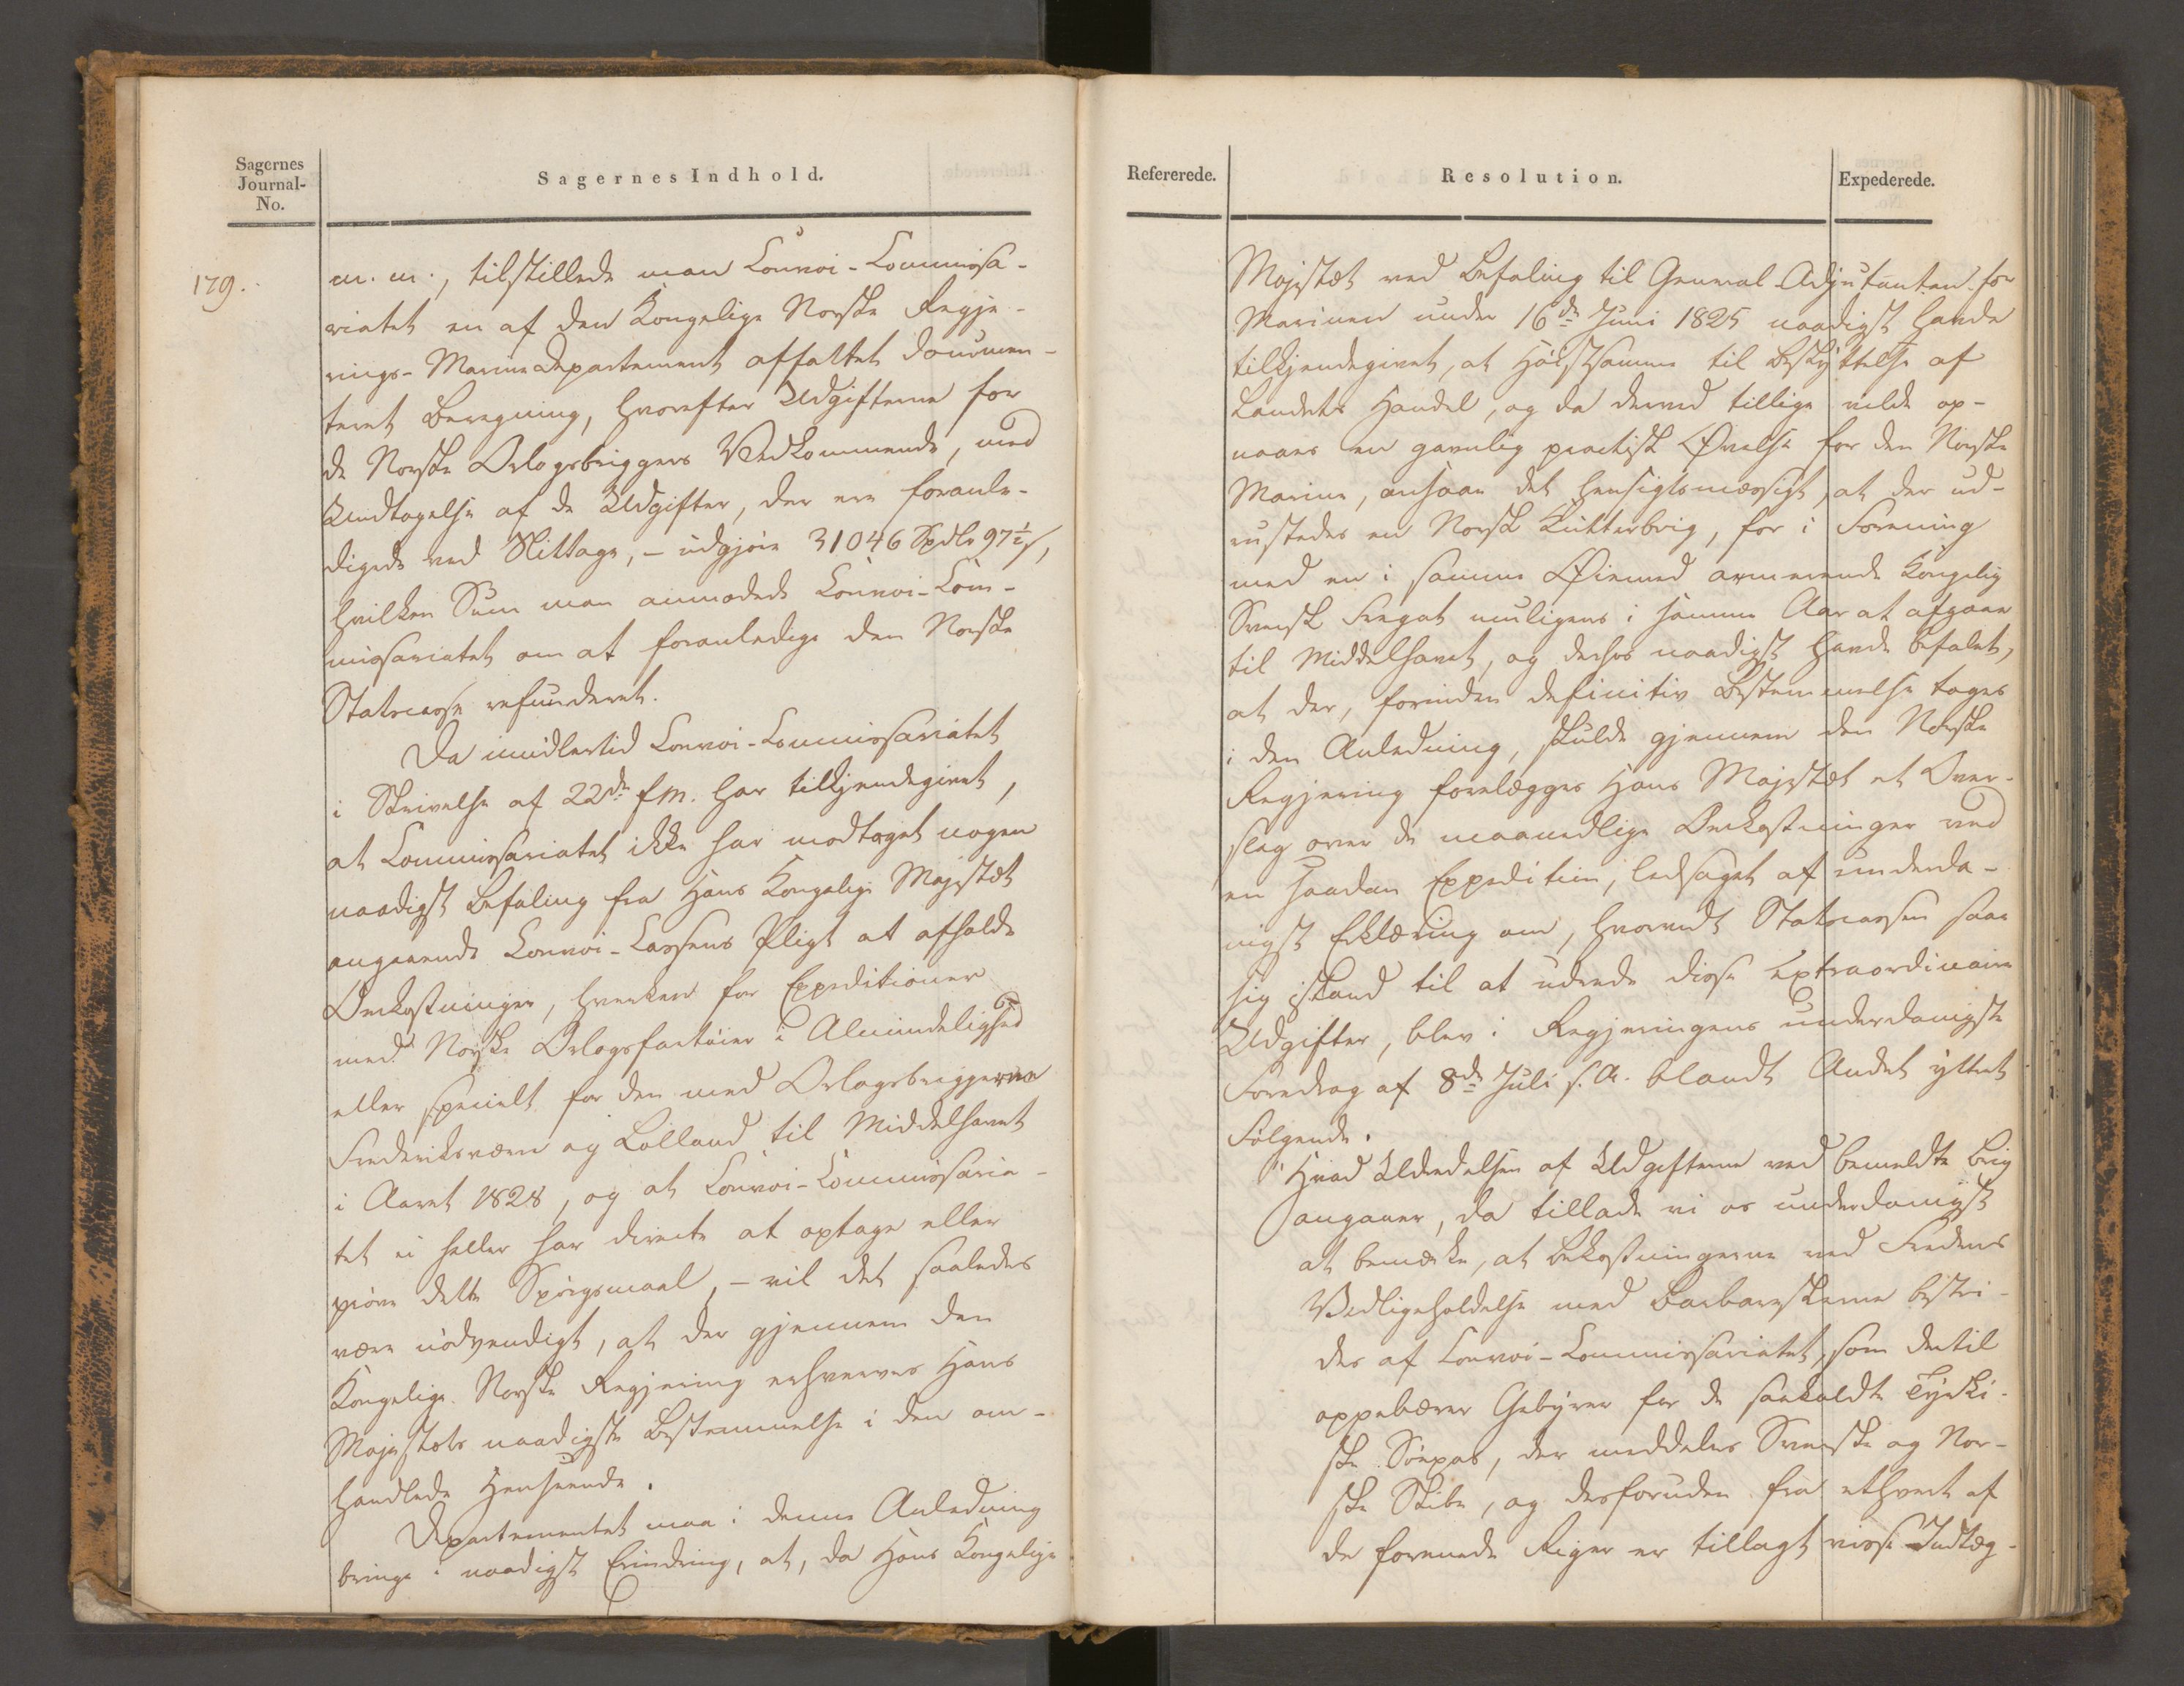 Sagernes
Journal-
No.
Sagernes Indhold.
179.
m. m., tilstillede man Convoi-Commissa-
riatet en af den Kongelige Norske Regje-
rings-Marinedepartement affattet documen-
teret Beregning, hvorefter Udgifterne for
de Norske Orlogsbriggers Vedkommende, med
Undtagelse af de Udgifter, der ere foranle-
digede ved Slittage, – udgjøre 31046 Spdlr 97½ s,
hvilken Sum man anmodede Convoi-Com-
missariatet om at foranledige den Norske
Statscasse refunderet.
Da imidlertid Convoi-Commissariatet
i Skrivelse af 22de f. M. har tilkjendegivet,
at Commissariatet ikke har modtaget nogen
naadigst Befaling fra Hans Kongelige Majestæt
angaaende Convoi-Cassens Pligt at afholde
Omkostninger, hverken for Expeditioner
med Norske Orlogsfartøier i Almindelighed
eller specielt for den med Orlogsbriggerne
Frederiksværn og Lolland til Middelhavet
i Aaret 1828, og at Convoi-Commissaria-
tet ei heller har directe at optage eller
prøve dette Spørgsmaal, – vil det saaledes
være nødvendigt, at der gjennem den
Kongelige Norske Regjering erhverves Hans
Majestæts naadigste Bestemmelse i den om-
handlede Henseende.
Departementet maa i denne Anledning
bringe i naadigst Erindring, at, da Hans Kongelige
Refererede.
Resolution.
Expederede.
Majestæt ved Befaling til General-Adjutanten for
Marinen under 16de Juni 1825 naadigst havde
tilkjendegivet, at Høistsamme til Beskyttelse af
Landets Handel, og da derved tillige vilde op-
naaes en gavnlig practisk Øvelse for den Norske
Marine, ansaae det hensigtsmæssigt, at der ud-
rustedes en Norsk Kutterbrig, for i Forening
med en i samme Øiemed armerende Kongelig
Svensk Fregat muligens i samme Aar at afgaae
til Middelhavet, og derhos naadigst havde befalet,
at der, forinden definitiv Bestemmelse toges
i den Anledning, skulde gjennem den Norske
Regjering forelægges Hans Majestæt et Over-
slag over de maanedlige Omkostninger ved
en saadan Expedition, ledsaget af underda-
nigst Erklæring om, hvorvidt Statscassen saae
sig istand til at udrede disse extraordinaire
Udgifter, blev i Regjeringens underdanigste
Foredrag af 8de Juli s. A. blandt Andet yttret
Følgende:
"Hvad Udredelsen af Udgifterne ved bemeldte Brig
angaaer, da tillade vi os underdanigst
at bemærke, at Bekostningerne ved Fredens
Vedligeholdelse med Barbareskerne bestri-
des af Convoi-Commissariatet, som dertil
oppebærer Gebyrer for de saakaldte Tyrki-
ske Søepas, der meddeles Svenske og Nor-
ske Skibe, og desforuden fra ethvert af
de forenede Riger er tillagt visse Indtæg-